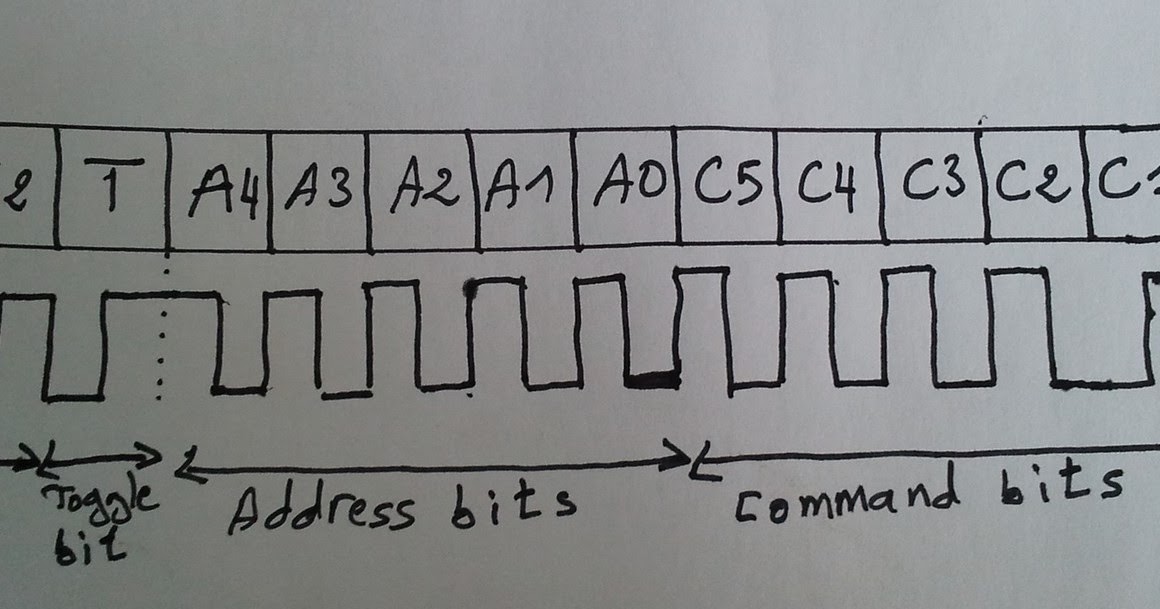 2 T A4 A3 A2 A1 A0 C5 C4 C3 C2 C1
Toggle bit
Address bits
Command bits